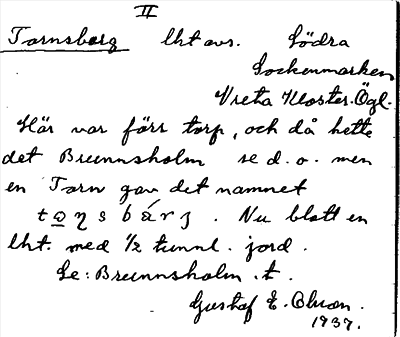 II
Tornsberg lht avs. Södra
Sockenmarken
Vreta Kloster. Ögl.
Här var förr torp, och då hette
det Brunnsholm se d. o. men
en Torn gav det namnet
to̲ŋsbárʒ. Nu blott en
lht. med 1/2 tunnl. jord.
Se: Brunnsholm. t.
Gustaf E.
1937.